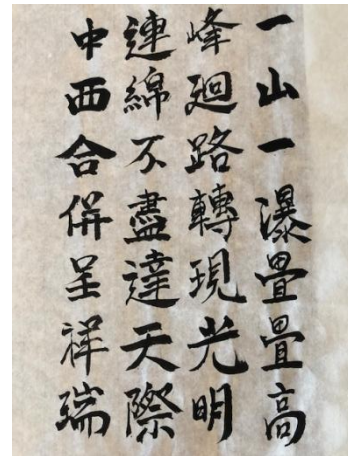 一山一瀑疊疊高
峰迴路轉現光明
連綿不盡達天際
中西合併呈祥瑞